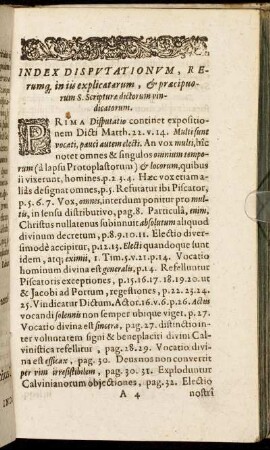 INDEX DISPVTATIONVM, RE-
rumq́; in iis explicatarum, & præcipuo-
rum S. Scripturæ dictorum vin-
dicatorum.
PRIMA Disputatio continet expositio-
nem Dicti Matth. 22. v. 14. Multi sunt
vocati, pauci autem electi. An vox multi, hîc
notet omnes & singulos omnium tempo-
rum (à lapsu Protoplastorum) & locorum, quibus
ii vixerunt, homines. p. 2. 3. 4. Hæc vox etiam a-
liàs designat omnes, p. 5. Refutatur ibi Piscator,
p. 5. 6. 7. Vox, omnes, interdum ponitur pro mul-
tis, in sensu distributivo, pag. 8. Particulâ, enim,
Christus nullatenus subinnuit absolutum aliquod
divinum decretum, p. 8. 9. 10. 11. Electio diver-
simodè accipitur, p. 12. 13. Electi quandoque sunt
idem, atq; eximii, 1. Tim. 5. v. 21. p. 14. Vocatio
hominum divina est generalis, p. 14. Refelluntur
Piscatoris exceptiones, p. 15. 16. 17. 18. 19. 20. ut
& Jacobi ad Portum, regestiones, p. 22. 23. 24.
25. Vindicatur Dictum, Act. 16. v. 6. p. 26. Actus
vocandi solennis non semper ubique viget. p. 27.
Vocatio divina est sincera, pag. 27. distinctio in-
ter voluntatem signi & beneplaciti divini Cal-
vinistica refellitur, pag. 28. 29. Vocatio divi-
na est efficax, pag. 30. Deus nos non convertit
per vim irresistibilem, pag. 30. 31. Exploduntur
Calvinianorum objectiones, pag. 32. Electio
A 4 nostri